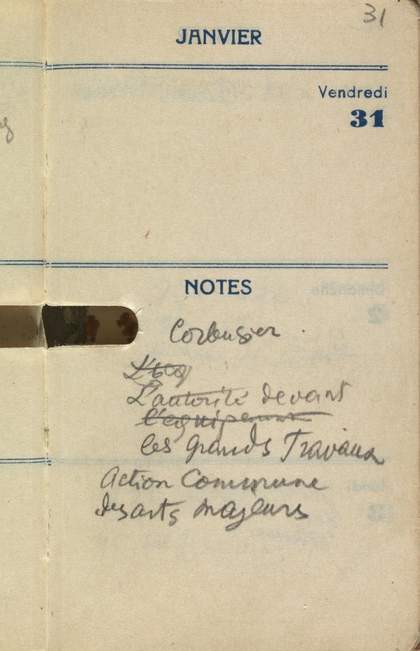 31
JANVIER
Vendredi
31
NOTES
Corbusier.
L'Eq
L'autorité devant
l'equipement
les grands Travaux
Action Commune
des arts majeurs